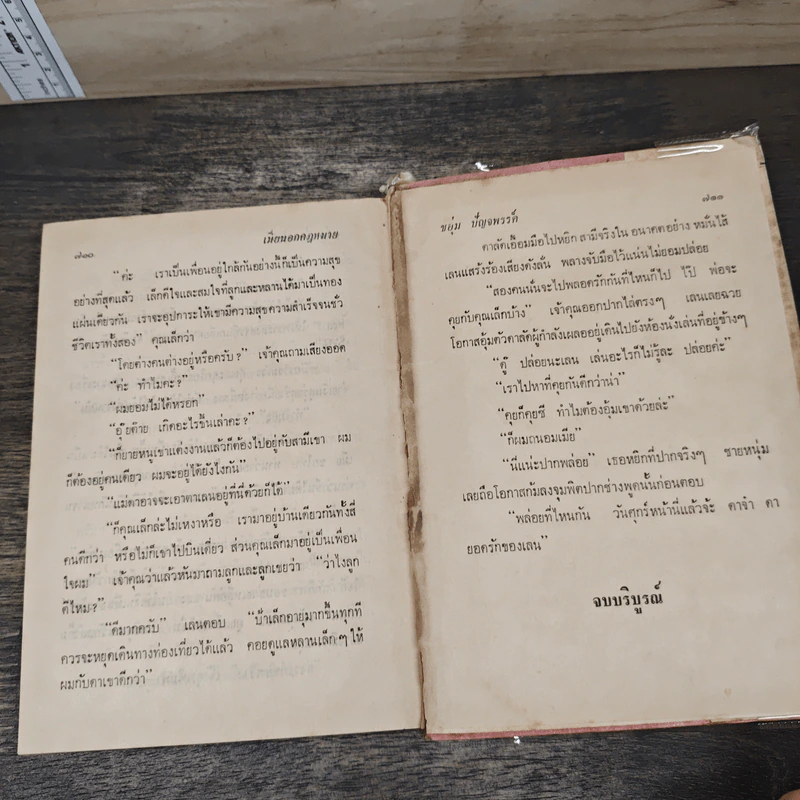 ๗๑๐ เพื่อนอกกฎหมาย
“ค่ะ เราเป็นเพื่อนอยู่ใกล้กันอย่างนี้ก็เป็นความสุข
อย่างที่สุดแล้ว เล็กดีใจและสมใจที่ลูกและหลานได้มาเป็นทอง
แผ่นเดียวกัน เราจะอุปการะให้เขามีความสุขความสำเร็จจนชั่ว
ชีวิตเราทั้งสอง” คุณเล็กว่า
“โดยต่างคนต่างอยู่หรือครับ?” เจ้าคุณถามเสียงออด
“ค่ะ ทำไมคะ?”
“ผมยอมไม่ได้หรอก”
“อุ๊ยต๊าย เกิดอะไรขึ้นเล่าคะ?”
“ก็ยายหนูเขาแต่งงานแล้วก็ต้องไปอยู่กับสามีเขา ผม
ก็ต้องอยู่คนเดียว ผมจะอยู่ได้ยังไงกัน”
“แม่ดาอาจจะเอาตาเลนอยู่ที่นี่ด้วยก็ได้”
“ก็คุณเล็กล่ะไม่เหงาหรือ เรามาอยู่บ้านเดียวกันทั้งสี่
คนดีกว่า หรือไม่ก็เขาไปบินเดี่ยว ส่วนคุณเล็กมาอยู่เป็นเพื่อน
ใจผม” เจ้าคุณว่าแล้วหันมาถามลูกและลูกเขยว่า “ว่าไงลูก
ดีไหม?”
“ดีมากครับ” เลนตอบ “ป้าเล็กอายุมากขึ้นทุกที
ควรจะหยุดเดินทางท่องเที่ยวได้แล้ว คอยดูแลหลานเล็กๆ ให้
ผมกับดาเขาดีกว่า”
ชอุ่ม ปัญจพรรค์ ๗๑๑
ดาลัดเอื้อมมือไปหยิก สามีจริงใน อนาคตอย่าง หมั่นไส้
เลนแสร้งร้องเสียงดังลั่น พลางจับมือไว้แน่นไม่ยอมปล่อย
“สองคนนั่นจะไปพลอดรักกันที่ไหนก็ไป ไป๊ พ่อจะ
คุยกับคุณเล็กบ้าง” เจ้าคุณออกปากไล่ตรงๆ เลนเลยฉวย
โอกาสอุ้มตัวดาลัดผู้กำลังเผลออยู่เดินไปยังห้องนั่งเล่นที่อยู่ข้างๆ
“ดู๊ ปล่อยนะเลน เล่นอะไรก็ไม่รู้ละ ปล่อยค่ะ”
“เราไปหาที่คุยกันดีกว่าน่า”
“คุยก็คุยซี ทำไมต้องอุ้มเขาด้วยล่ะ”
“ก็ผมถนอมเมีย”
“นี่แน่ะปากพล่อย” เธอหยิกที่ปากจริงๆ ชายหนุ่ม
เลยถือโอกาสก้มลงจุมพิตปากช่างพูดนั้นก่อนตอบ
“พล่อยที่ไหนกัน วันศุกร์หน้านี่แล้วจ้ะ ดาจ๋า ดา
ยอดรักของเลน”
จบบริบูรณ์